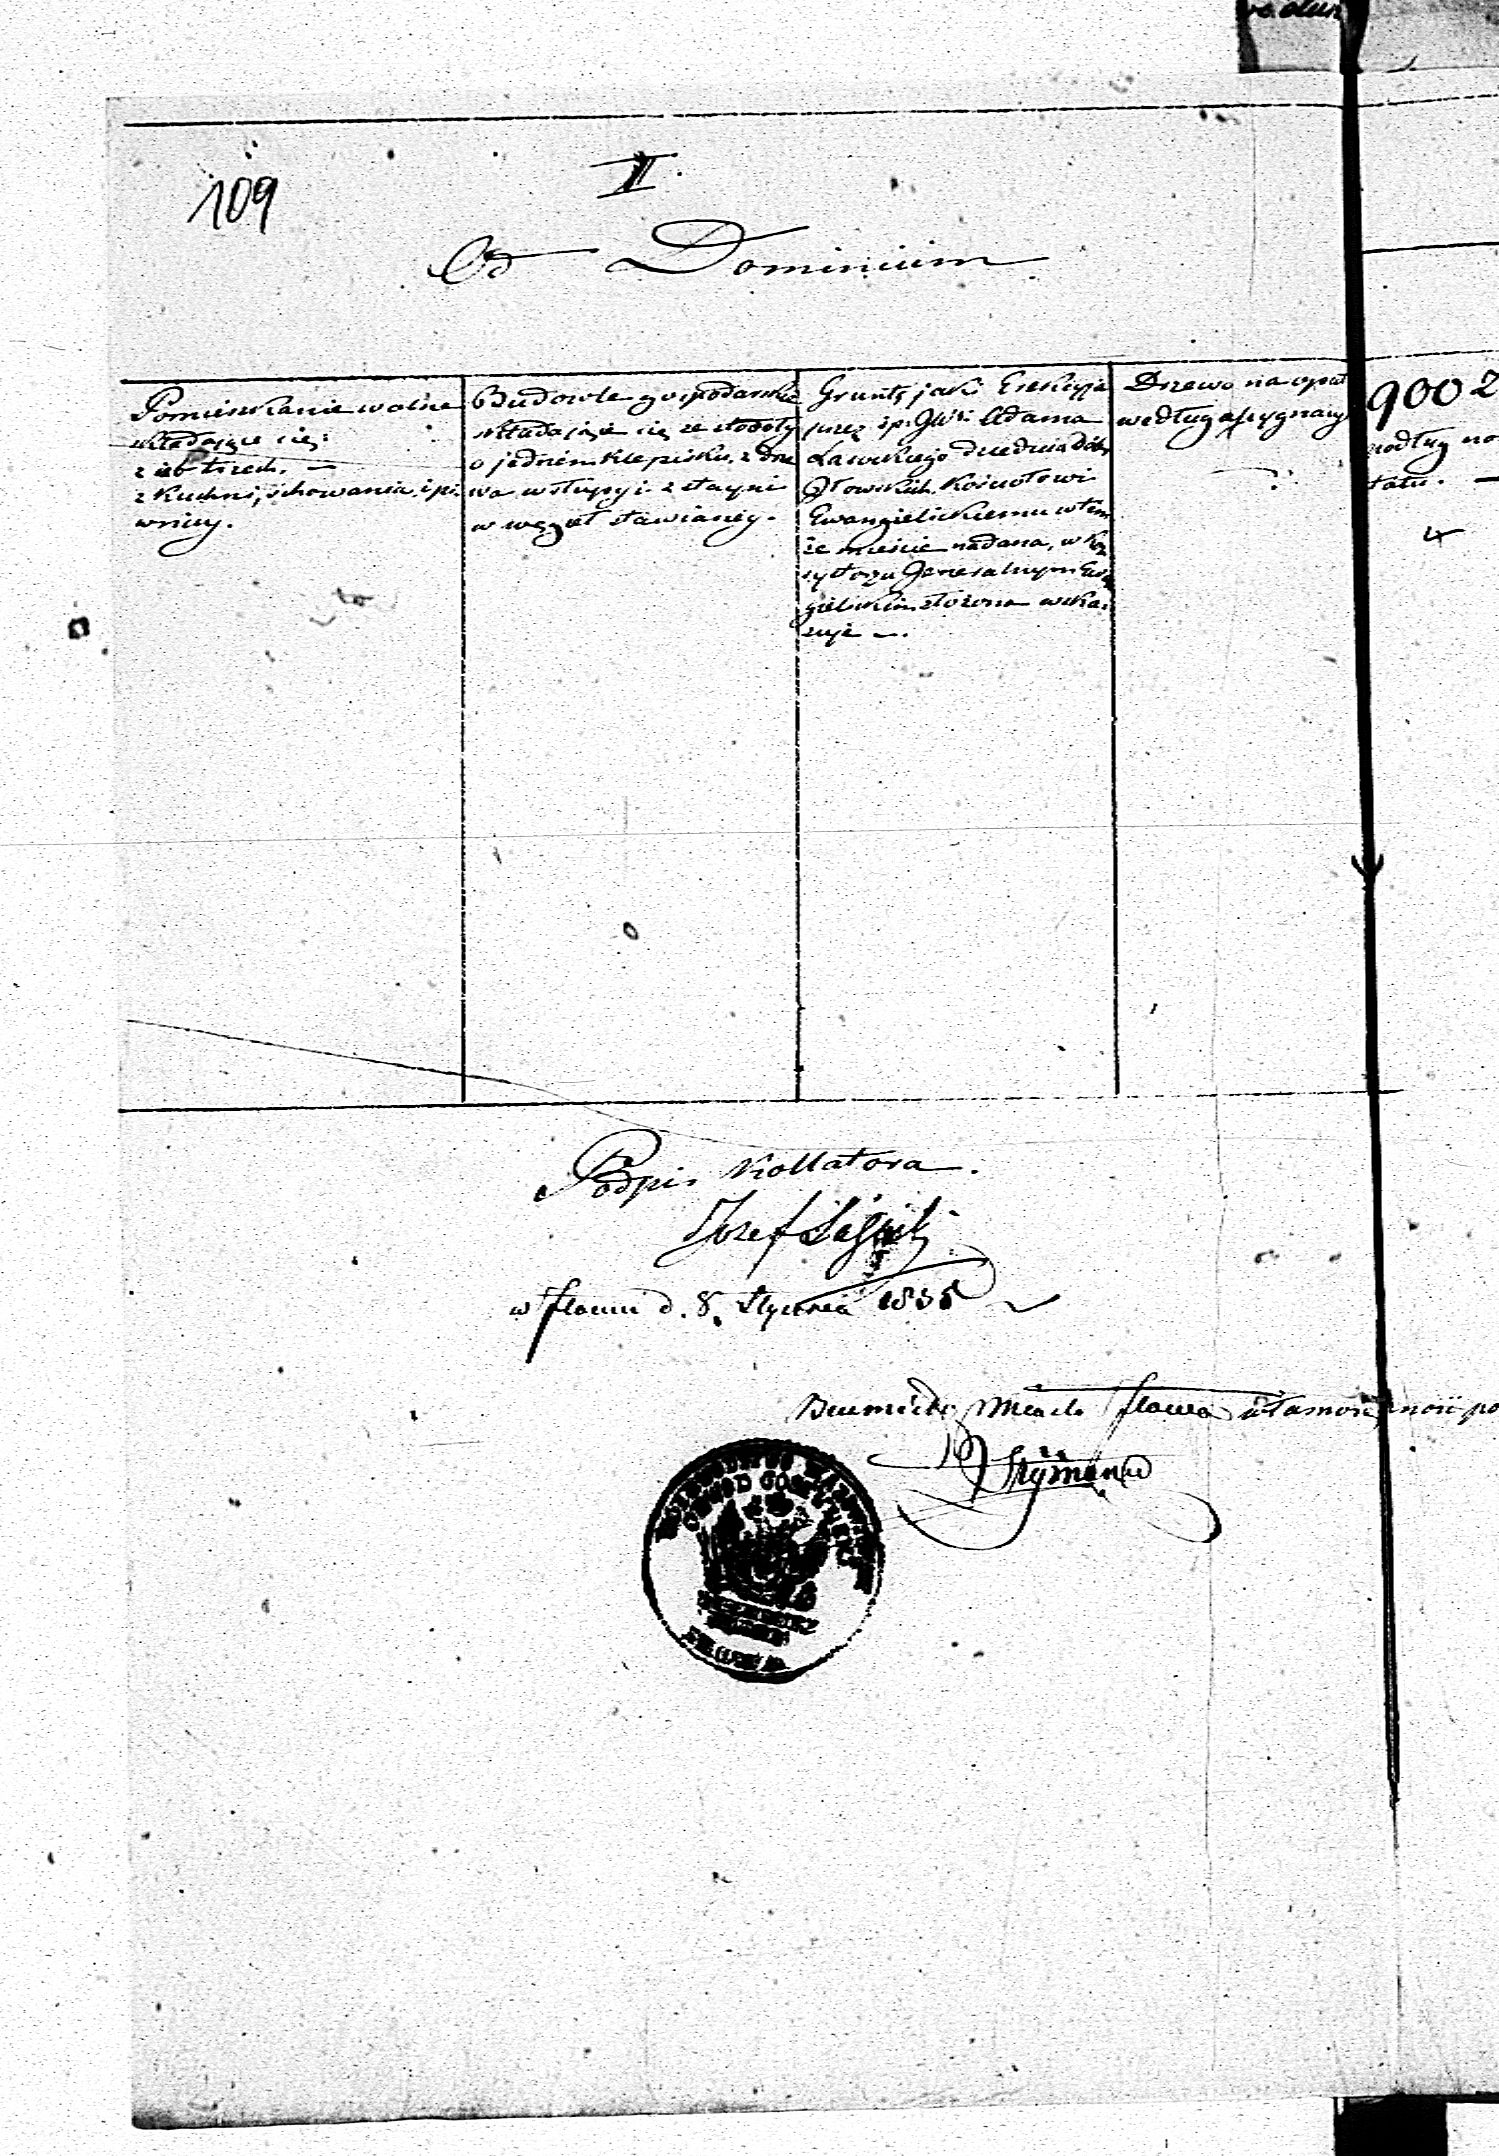 109
II.
Od Dominium
Pomieszkanie wolne
składające się:
z izb trzech. —
z kuchni, schowania i pi-
wnicy.
Budowle gospodarskie
składające się ze stodoły
o jednem klepisku z drze
wa w słupy i z stayni
w węgieł stawianey.
Gruntą jaki Erekcyja
przez ś.p. JW. Adama
Lasockiego Dziedzica Dóbr
Iłowskich, Kościołowi
Ewangielickiemu w tem
że mieście nadana, w Kon
systorzu Generalnym Ewan
gielickim złożona wska-
zuje —.
Drzewo na opał
według assygnacyi
900 Z
podług
Podpis Kollatora.
Józef
w Iłowie d. 8. Stycznia 1835
Burmistrz Miasta Iłowa
OBWOD GOS